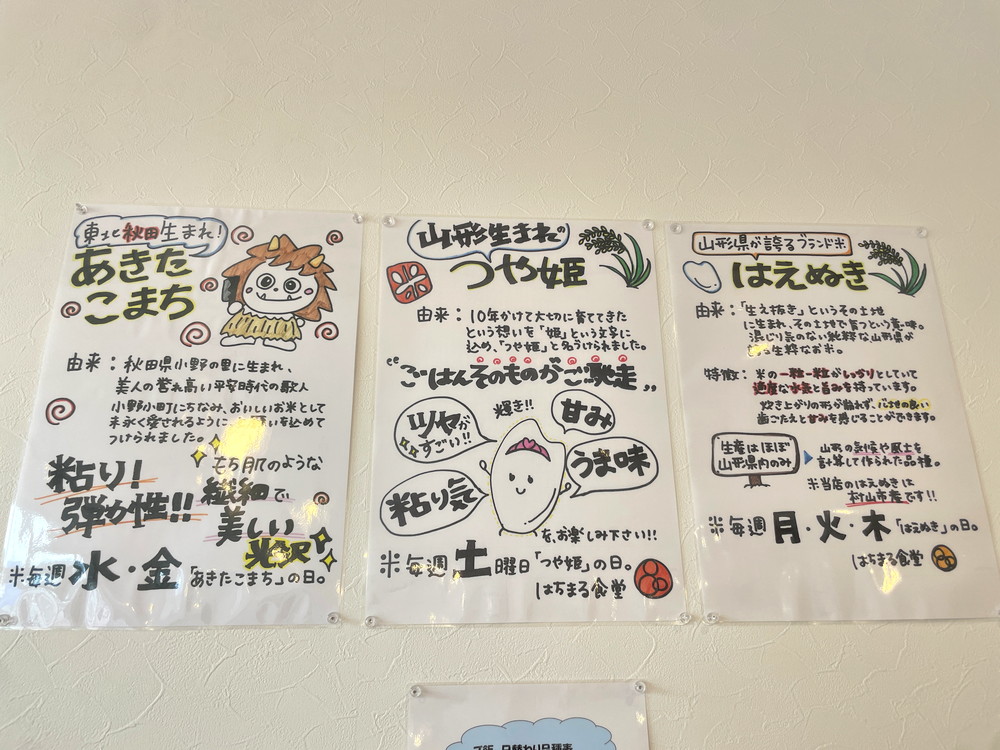 東北秋田生まれ!
あきた
こまち
由来：秋田県小野の里に生まれ、
美人の誉れ高い平安時代の歌人
小野小町にちなみ、おいしいお米として
末永く愛されるように 願いを込めて
つけられました。
粘り!
弾力性!!
もち肌のような
繊細で、
美しい
光沢
※毎週水・金「あきたこまち」の日。
山形生まれの
つや姫
由来：10年かけて大切に育ててきた
という想いを「姫」という文字に
込め、「つや姫」と名うけられました。
“ごはんそのものがご馳走„
ツヤが
すごい!!
輝き!!
甘み
粘り気
うま味
を、お楽しみ下さい!!
※毎週土曜日「つや姫」の日。
はちまる食堂
山形県が誇るブランド米
はえぬき
由来：「生え抜き」というその土地
に生まれ、その土地で育つという意味。
混じり気のない純粋な山形県が
生粋なお米。
特徴：米の一粒一粒がしっかりとしていて
適度な水気と旨みを持っています。
炊き上がりの形が崩れず、心地の良い
歯ごたえと甘みを感じることができます。
生産はほぼ
山形県内のみ
山形の気候や風土を
計算して作られた品種。
※当店のはえぬきは
村山市産です!!
※毎週月・火・木「はえぬき」の日。
はちまる食堂